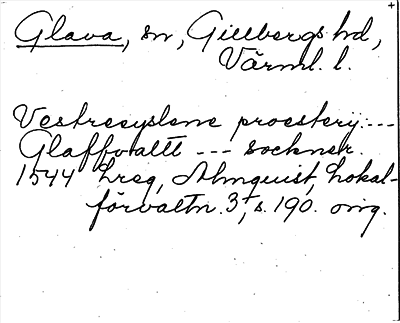 Glava, sn, Gillbergs hd,
Värml. l.
Vestresyslene proesterij: ---
Glaffvallt --- sockner.
1544 Lreg, Almquist, Lokal-
förvaltn. 3, s. 190. orig.